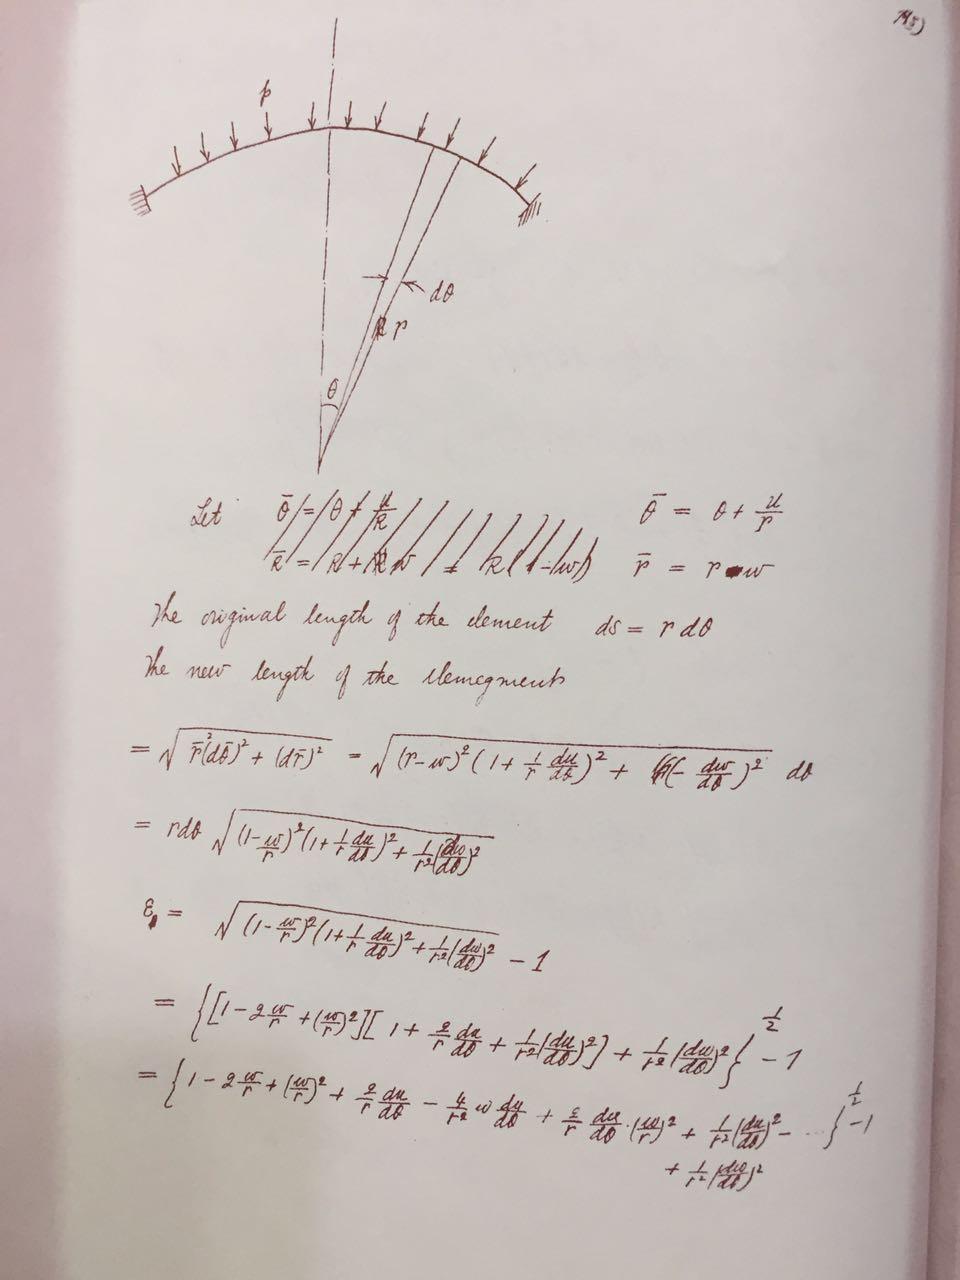 145)
p
dθ
r
θ
Let θ̄ = θ + u/R θ̄ = θ + u/r
R̄ = R + w = R(1-w) r̄ = r - w
The original length of the element ds = r dθ
The new length of the elemegments
= √(r̄²(dθ̄)² + (dr̄)²) = √((r-w)²(1 + 1/r du/dθ)² + (- dw/dθ)²) dθ
= rdθ √((1-w/r)²(1+1/r du/dθ)² + 1/r²(dw/dθ)²)
ε = √((1-w/r)²(1+1/r du/dθ)² + 1/r²(dw/dθ)²) - 1
= {[1-2w/r + (w/r)²][1 + 2/r du/dθ + 1/r²(du/dθ)²] + 1/r²(dw/dθ)²}^½ - 1
= {1-2w/r + (w/r)² + 2/r du/dθ - 4/r² w du/dθ + 2/r du/dθ·(w/r)² + 1/r²(du/dθ)² - ... }^½ - 1
+ 1/r²(dw/dθ)²